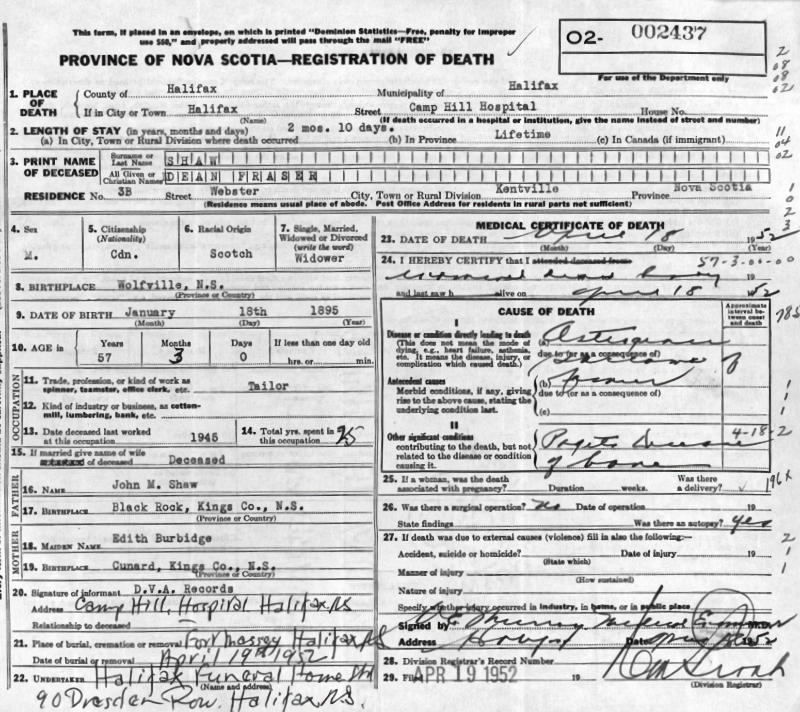 This form, if placed in an envelope, on which is printed "Dominion Statistics—Free, penalty for improper
use $50," and properly addressed will pass through the mail "FREE"
O2- 002437
For use of the Department only
PROVINCE OF NOVA SCOTIA—REGISTRATION OF DEATH
1. PLACE OF DEATH
County of Halifax Municipality of Halifax
If in City or Town Halifax Street Camp Hill Hospital House No.
(Name) (If death occurred in a hospital or institution, give the name instead of street and number)
2. LENGTH OF STAY (in years, months and days) 2 mos. 10 days. Lifetime
(a) In City, Town or Rural Division where death occurred (b) In Province (c) In Canada (if immigrant)
3. PRINT NAME OF DECEASED
Surname or Last Name SHAW
All Given or Christian Names DEAN FRASER
RESIDENCE No. 3B Street Webster City, Town or Rural Division Kentville Province Nova Scotia
(Residence means usual place of abode. Post Office Address for residents in rural parts not sufficient)
4. Sex
M.
5. Citizenship (Nationality)
Cdn.
6. Racial Origin
Scotch
7. Single, Married, Widowed or Divorced (write the word)
Widower
8. BIRTHPLACE Wolfville, N.S.
(Province or Country)
9. DATE OF BIRTH January 18th 1895
(Month) (Day) (Year)
10. AGE in Years Months Days If less than one day old
57 3 0 hrs. or min.
OCCUPATION
11. Trade, profession, or kind of work as spinner, teamster, office clerk, etc. Tailor
12. Kind of industry or business, as cotton-mill, lumbering, bank, etc.
13. Date deceased last worked at this occupation 1945
14. Total yrs. spent in this occupation 25
15. If married give name of wife of deceased Deceased
FATHER
16. NAME John M. Shaw
17. BIRTHPLACE Black Rock, Kings Co., N.S.
(Province or Country)
MOTHER
18. MAIDEN NAME Edith Burbidge
19. BIRTHPLACE Cunard, Kings Co., N.S.
(Province or Country)
20. Signature of informant D.V.A. Records
Address Camp Hill, Hospital Halifax, NS
Relationship to deceased
21. Place of burial, cremation or removal Fort Massey Halifax NS
Date of burial or removal April 19th 1952
22. UNDERTAKER Halifax Funeral Home Ltd
(Name and address)
90 Dresden Row. Halifax, N.S.
MEDICAL CERTIFICATE OF DEATH
23. DATE OF DEATH April 18 1952
(Month) (Day) (Year)
24. I HEREBY CERTIFY that I attended deceased from 57-3-00-00
19
and last saw h alive on April 18 1952
CAUSE OF DEATH
Approximate interval between onset and death
I
Disease or condition directly leading to death
(This does not mean the mode of dying, e.g., heart failure, asthenia, etc. It means the disease, injury, or complication which caused death.)
(a)
due to (or as a consequence of)
Antecedent causes
Morbid conditions, if any, giving rise to the above cause, stating the underlying condition last.
(b)
due to (or as a consequence of)
(c)
II
Other significant conditions
contributing to the death, but not related to the disease or condition causing it.
Pagets Disease
of bone
4-18-2
25. If a woman, was the death associated with pregnancy? Duration weeks. Was there a delivery?
26. Was there a surgical operation? No Date of operation 19
State findings Was there an autopsy? Yes
27. If death was due to external causes (violence) fill in also the following:—
Accident, suicide or homicide? Date of injury 19
(State which)
Manner of injury
(How sustained)
Nature of injury
Specify whether injury occurred in industry, in home, or in public place
Signed by
Address Date 1952
28. Division Registrar's Record Number
29. Filed APR 19 1952 19
(Division Registrar)